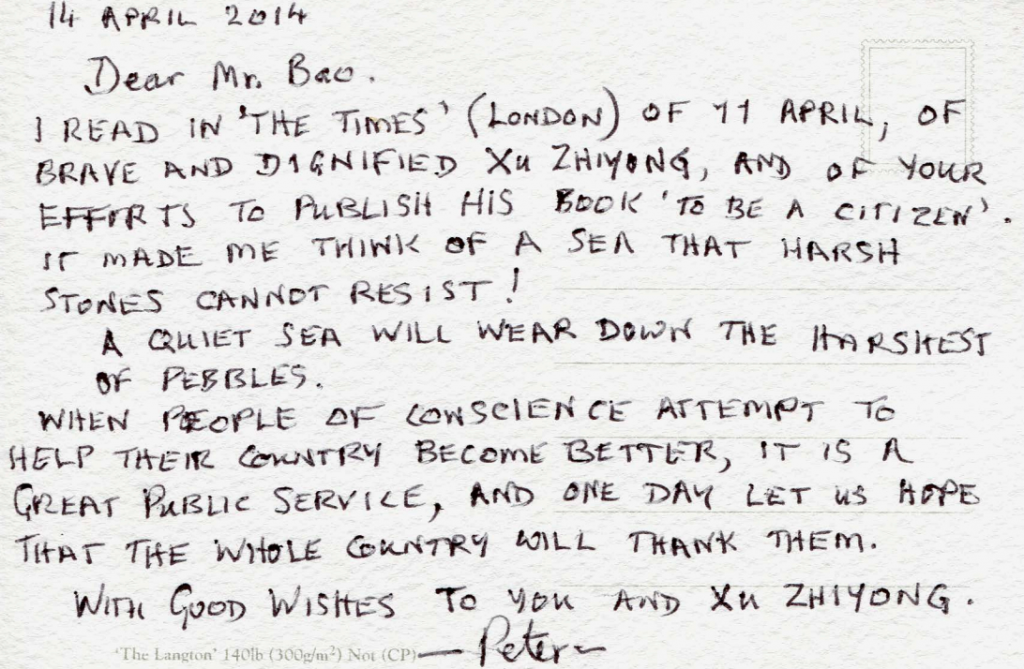 14 APRIL 2014
Dear Mr. Bao.
I READ IN 'THE TIMES' (LONDON) OF 11 APRIL, OF
BRAVE AND DIGNIFIED XU ZHIYONG, AND OF YOUR
EFFORTS TO PUBLISH HIS BOOK 'TO BE A CITIZEN'.
IT MADE ME THINK OF A SEA THAT HARSH
STONES CANNOT RESIST!
A QUIET SEA WILL WEAR DOWN THE HARSHEST
OF PEBBLES.
WHEN PEOPLE OF CONSCIENCE ATTEMPT TO
HELP THEIR COUNTRY BECOME BETTER, IT IS A
GREAT PUBLIC SERVICE, AND ONE DAY LET US HOPE
THAT THE WHOLE COUNTRY WILL THANK THEM.
WITH GOOD WISHES TO YOU AND XU ZHIYONG.
— Peter —
'The Langton' 140lb (300g/m²) Not (CP)